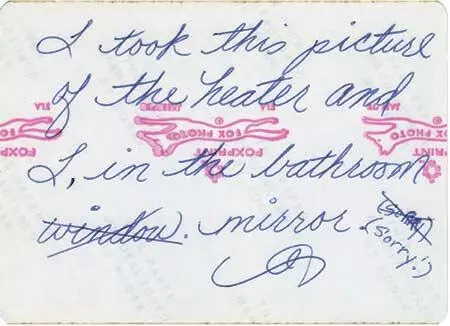 I took this picture
of the heater and
FOX PHOTO
FOXPRINT
FOX PHOTO
FOXPRINT
FOX PHOTO
I, in the bathroom
window. mirror.
(sorry!)